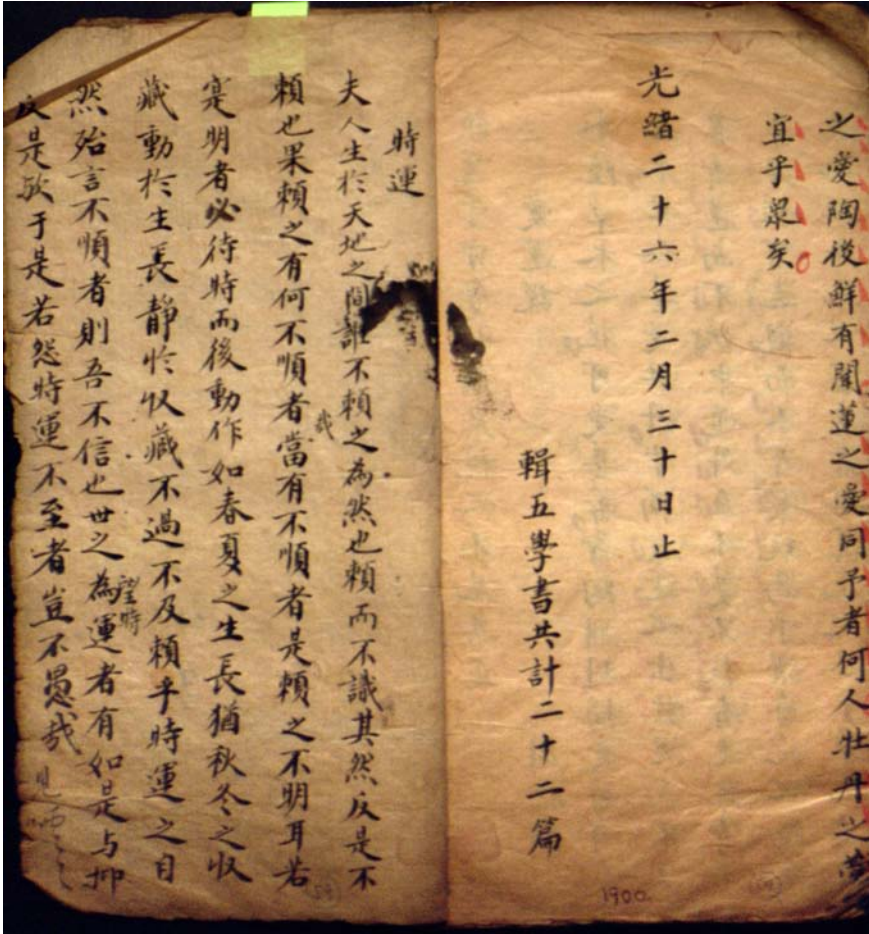 之愛陶後鮮有聞蓮之愛同予者何人牡丹之愛
宜乎衆矣
光緒二十六年二月三十日止
輯五學書共計二十二篇
1900
時運
夫人生於天地之間誰不賴之為然也賴而不識其然反是不
賴也果賴之有何不順者哉當有不順者是賴之不明耳若
寔明者必待時而後動作如春夏之生長猶秋冬之收
藏動於生長靜於收藏不過不及賴乎時運之自
然殆言不順者則吾不信也世之為望時運者有如是与抑
反是歟于是若怨時運不至者豈不愚哉